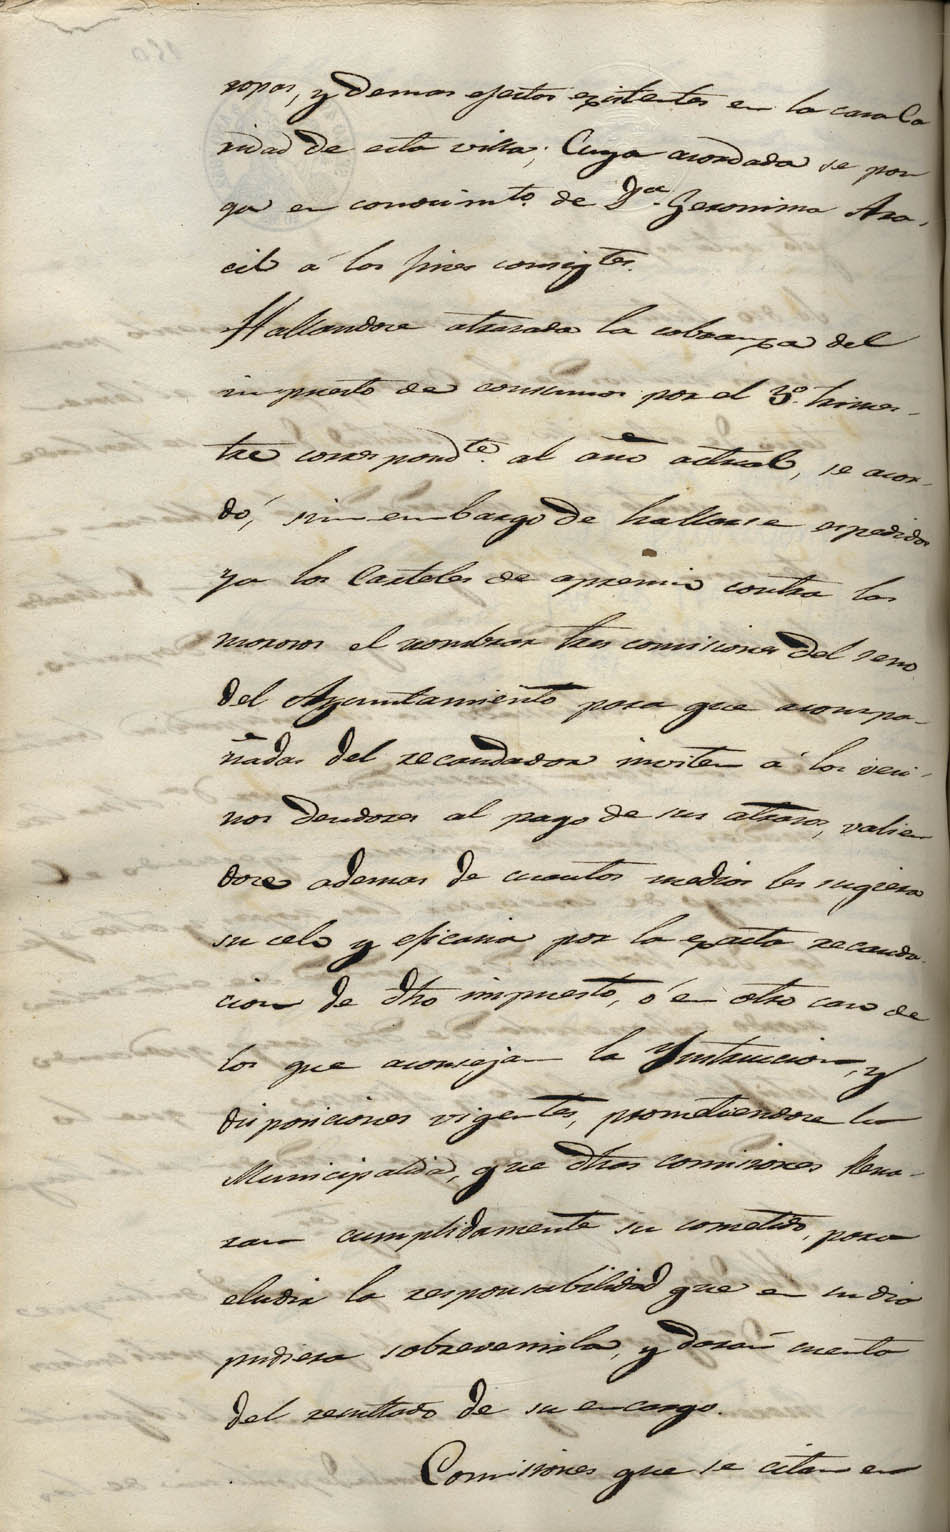 ropas, y demas efectos existentes en la casa Ca
ridad de esta villa; Cuya acordada se pon
ga en conocimto. de Da. Geronima Ara-
cil á los fines consigtes.
Hallandose atrasada la cobranza del
impuesto de consumos por el 3o. trimes-
tre correspondte. al año actual, se acor-
dó, sin embargo de hallarse espedidos
ya los Carteles de apremio contra los
morosos el nombrar tres comisiones del seno
del Ayuntamiento para que acompa-
ñadas del recaudador inviten á los veci-
nos deudores al pago de sus atrasos, valien
dose ademas de cuantos medios les sugiera
su celo y eficacia por la exacta recauda-
cion de dho impuesto, ó en otro caso de
los que aconsejan la Ynstruccion, y
disposiciones vigentes, prometiendose la
Municipalida, que dhas comisiones llena-
ran cumplidamente su cometido, para
eludir la responsabilidad que en su dia
pudiera sobrevenirla, y daran cuenta
del resultado de su encargo.
Comisiones que se citan en